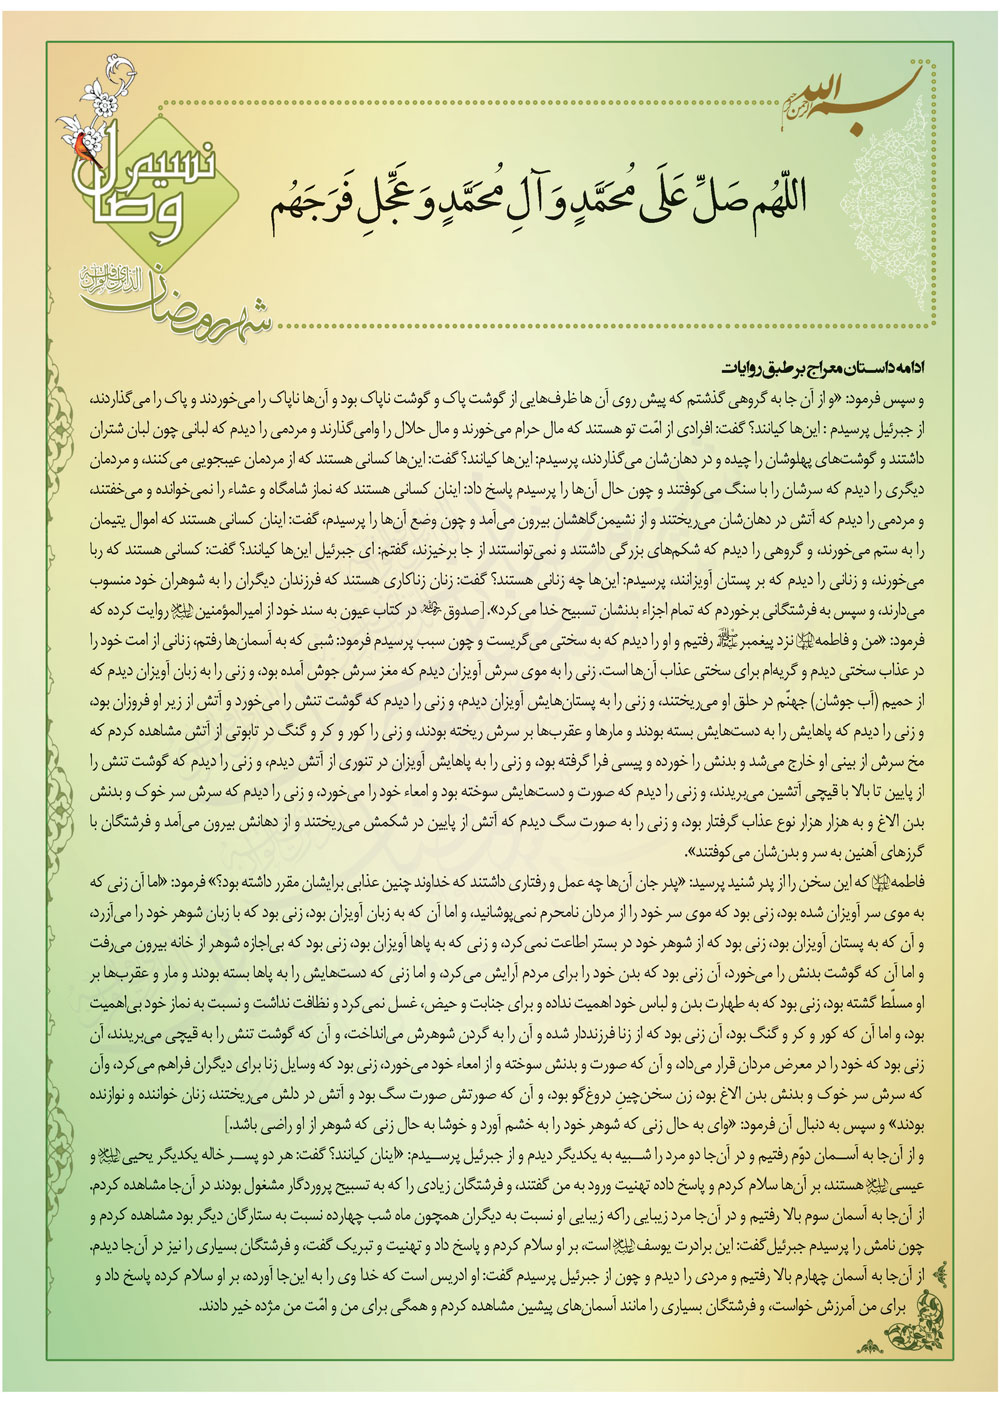 بسم الله الرحمن الرحیم
نسیم وصال
اللّهُم صَلِّ عَلَی مُحَمَّدٍ وَ آلِ مُحَمَّدٍ وَ عَجِّلِ فَرَجَهُم
شهر رمضان
ادامه داستان معراج بر طبق روایات
و سپس فرمود: «و از آن جا به گروهی گذشتم که پیش روی آن ها ظرف‌هایی از گوشت پاک و گوشت ناپاک بود و آن‌ها ناپاک را می‌خوردند و پاک را می‌گذاردند،
از جبرئیل پرسیدم : این‌ها کیانند؟ گفت: افرادی از امّت تو هستند که مال حرام می‌خورند و مال حلال را وامی‌گذارند و مردمی را دیدم که لبانی چون لبان شتران
داشتند و گوشت‌های پهلوشان را چیده و در دهان‌شان می‌گذاردند، پرسیدم: این‌ها کیانند؟ گفت: این‌ها کسانی هستند که از مردمان عیبجویی می‌کنند، و مردمان
دیگری را دیدم که سرشان را با سنگ می‌کوفتند و چون حال آن‌ها را پرسیدم پاسخ داد: اینان کسانی هستند که نماز شامگاه و عشاء را نمی‌خوانده و می‌خفتند،
و مردمی را دیدم که آتش در دهان‌شان می‌ریختند و از نشیمن‌گاهشان بیرون می‌آمد و چون وضع آن‌ها را پرسیدم، گفت: اینان کسانی هستند که اموال یتیمان
را به ستم می‌خورند، و گروهی را دیدم که شکم‌های بزرگی داشتند و نمی‌توانستند از جا برخیزند، گفتم: ای جبرئیل این‌ها کیانند؟ گفت: کسانی هستند که ربا
می‌خورند، و زنانی را دیدم که بر پستان آویزانند، پرسیدم: این‌ها چه زنانی هستند؟ گفت: زنان زناکاری هستند که فرزندان دیگران را به شوهران خود منسوب
می‌دارند، و سپس به فرشتگانی برخوردم که تمام اجزاء بدنشان تسبیح خدا می‌کرد». [صدوق در کتاب عیون به سند خود از امیرالمؤمنین روایت کرده که
فرمود: «من و فاطمه نزد پیغمبر رفتیم و او را دیدم که به سختی می‌گریست و چون سبب پرسیدم فرمود: شبی که به آسمان‌ها رفتم، زنانی از امت خود را
در عذاب سختی دیدم و گریه‌ام برای سختی عذاب آن‌ها است. زنی را به موی سرش آویزان دیدم که مغز سرش جوش آمده بود، و زنی را به زبان آویزان دیدم که
از حمیم (آب جوشان) جهنّم در حلق او می‌ریختند، و زنی را به پستان‌هایش آویزان دیدم، و زنی را دیدم که گوشت تنش را می‌خورد و آتش از زیر او فروزان بود،
و زنی را دیدم که پاهایش را به دست‌هایش بسته بودند و مارها و عقرب‌ها بر سرش ریخته بودند، و زنی را کور و کر و گنگ در تابوتی از آتش مشاهده کردم که
مخ سرش از بینی او خارج می‌شد و بدنش را خورده و پیسی فرا گرفته بود، و زنی را به پاهایش آویزان در تنوری از آتش دیدم، و زنی را دیدم که گوشت تنش را
از پایین تا بالا با قیچی آتشین می‌بریدند، و زنی را دیدم که صورت و دست‌هایش سوخته بود و امعاء خود را می‌خورد، و زنی را دیدم که سرش سر خوک و بدنش
بدن الاغ و به هزار هزار نوع عذاب گرفتار بود، و زنی را به صورت سگ دیدم که آتش از پایین در شکمش می‌ریختند و از دهانش بیرون می‌آمد و فرشتگان با
گرزهای آهنین به سر و بدن‌شان می‌کوفتند».
فاطمه که این سخن را از پدر شنید پرسید: «پدر جان آن‌ها چه عمل و رفتاری داشتند که خداوند چنین عذابی برایشان مقرر داشته بود؟» فرمود: «اما آن زنی که
به موی سر آویزان شده بود، زنی بود که موی سر خود را از مردان نامحرم نمی‌پوشانید، و اما آن که به زبان آویزان بود، زنی بود که با زبان شوهر خود را می‌آزرد،
و آن که به پستان آویزان بود، زنی بود که از شوهر خود در بستر اطاعت نمی‌کرد، و زنی که به پاها آویزان بود، زنی بود که بی‌اجازه شوهر از خانه بیرون می‌رفت
و اما آن که گوشت بدنش را می‌خورد، آن زنی بود که بدن خود را برای مردم آرایش می‌کرد، و اما زنی که دست‌هایش را به پاها بسته بودند و مار و عقرب‌ها بر
او مسلّط گشته بود، زنی بود که به طهارت بدن و لباس خود اهمیت نداده و برای جنابت و حیض، غسل نمی‌کرد و نظافت نداشت و نسبت به نماز خود بی‌اهمیت
بود، و اما آن که کور و کر و گنگ بود، آن زنی بود که از زنا فرزنددار شده و آن را به گردن شوهرش می‌انداخت، و آن که گوشت تنش را به قیچی می‌بریدند، آن
زنی بود که خود را در معرض مردان قرار می‌داد، و آن که صورت و بدنش سوخته و از امعاء خود می‌خورد، زنی بود که وسایل زنا برای دیگران فراهم می‌کرد، وآن
که سرش سر خوک و بدنش بدن الاغ بود، زن سخن‌چینِ دروغ‌گو بود، و آن که صورتش صورت سگ بود و آتش در دلش می‌ریختند، زنان خواننده و نوازنده
بودند» و سپس به دنبال آن فرمود: «وای به حال زنی که شوهر خود را به خشم آورد و خوشا به حال زنی که شوهر از او راضی باشد.]
و از آن‌جا به آسمان دوّم رفتیم و در آن‌جا دو مرد را شبیه به یکدیگر دیدم و از جبرئیل پرسیدم: «اینان کیانند؟ گفت: هر دو پسر خاله یکدیگر یحیی و
عیسی هستند، بر آن‌ها سلام کردم و پاسخ داده تهنیت ورود به من گفتند، و فرشتگان زیادی را که به تسبیح پروردگار مشغول بودند در آن‌جا مشاهده کردم.
از آن‌جا به آسمان سوم بالا رفتیم و در آن‌جا مرد زیبایی راکه زیبایی او نسبت به دیگران همچون ماه شب چهارده نسبت به ستارگان دیگر بود مشاهده کردم و
چون نامش را پرسیدم جبرئیل گفت: این برادرت یوسف است، بر او سلام کردم و پاسخ داد و تهنیت و تبریک گفت، و فرشتگان بسیاری را نیز در آن‌جا دیدم.
از آن‌جا به آسمان چهارم بالا رفتیم و مردی را دیدم و چون از جبرئیل پرسیدم گفت: او ادریس است که خدا وی را به این‌جا آورده، بر او سلام کرده پاسخ داد و
برای من آمرزش خواست، و فرشتگان بسیاری را مانند آسمان‌های پیشین مشاهده کردم و همگی برای من و امّت من مژده خیر دادند.